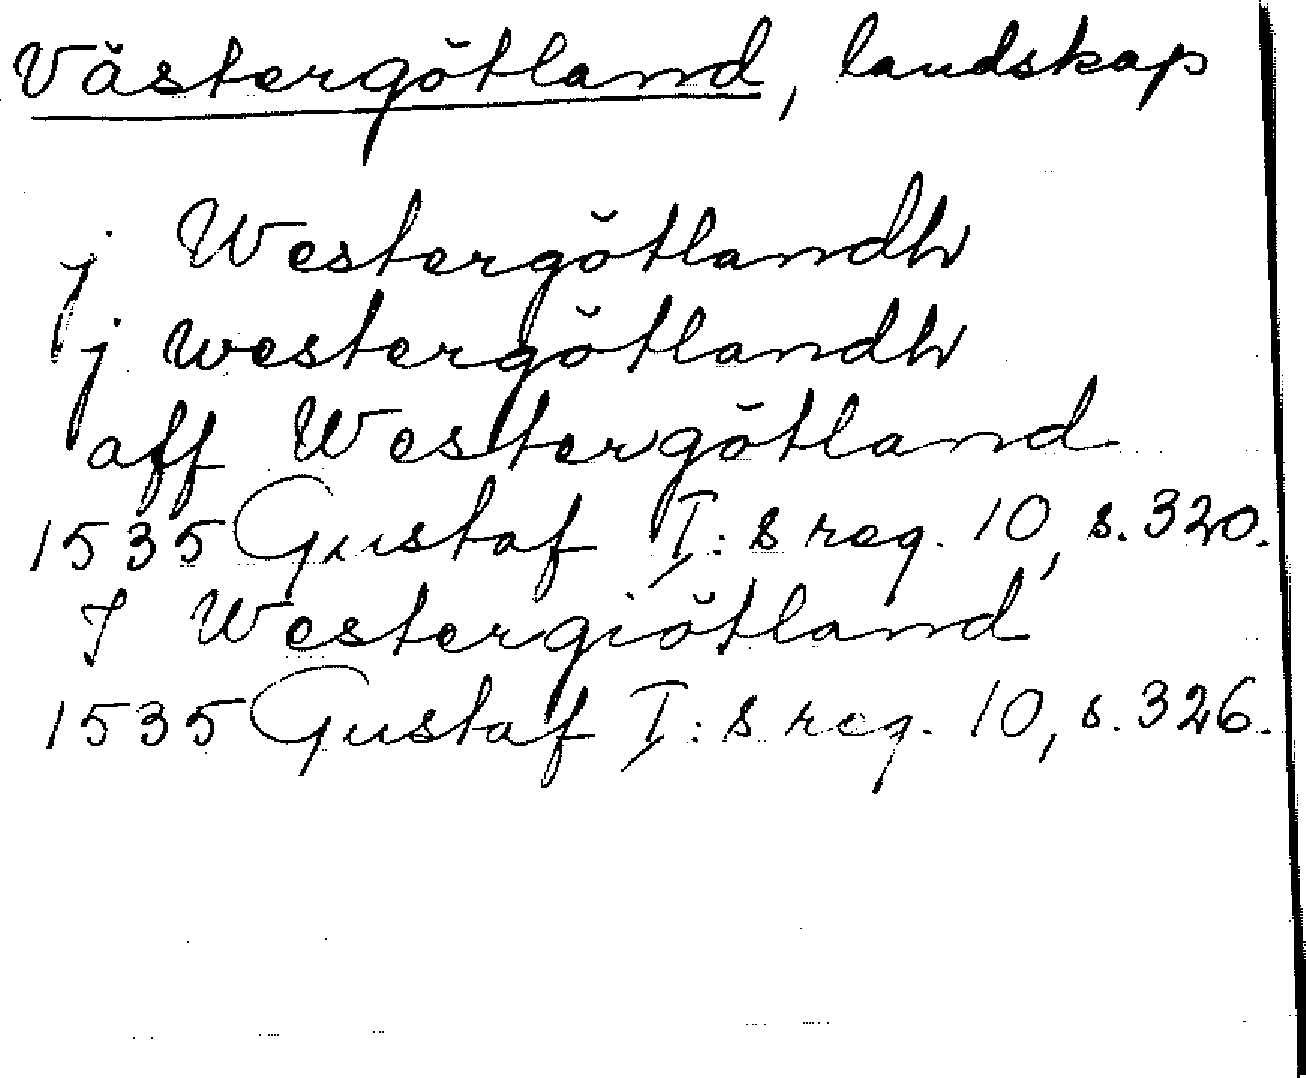 Västergötland, landskap
j Westergötlandh
j westergötlandh
aff Westergötland
1535 Gustaf I:s reg. 10, s. 320.
I Westergiötland
1535 Gustaf I:s reg. 10, s. 326.